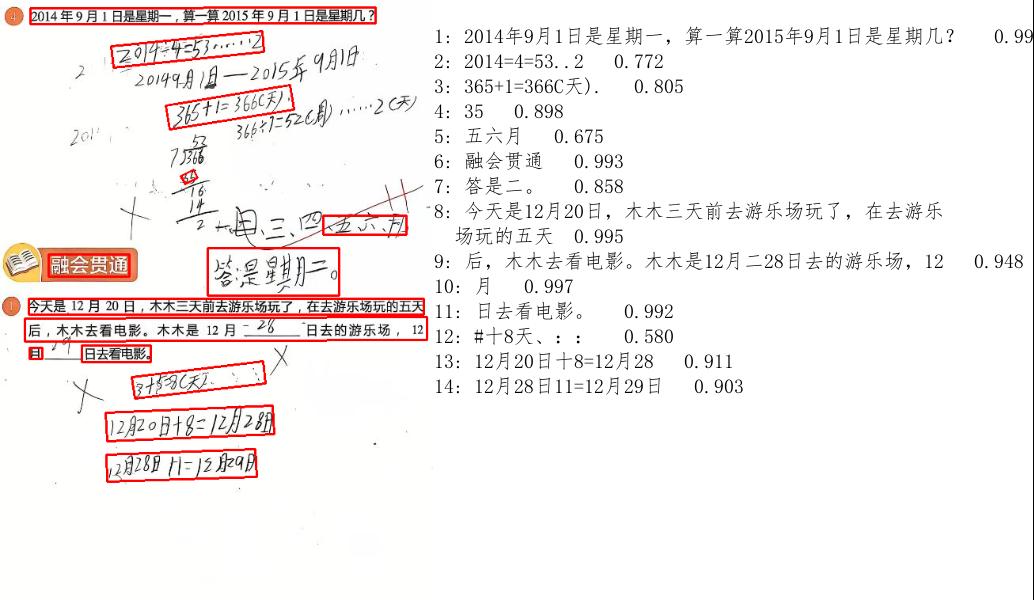 4 2014年9月1日是星期一，算一算2015年9月1日是星期几？
2014÷4=53……2
2
20149月1日—2015年9月1日
365+1=366(天).
366÷7=52(周)……2(天)
201
52
7 366
35
16
14
2
三、四、五、六、
融会贯通
答:是星期二。
1 今天是 12 月 20 日，木木三天前去游乐场玩了，在去游乐场玩的五天
后，木木去看电影。木木是 12 月 28 日去的游乐场，12
月 29 日去看电影。
3+5=8(天).
12月20日+8=12月28日
12月28日+1=12月29日
1: 2014年9月1日是星期一，算一算2015年9月1日是星期几？ 0.99
2: 2014=4=53..2 0.772
3: 365+1=366C天). 0.805
4: 35 0.898
5: 五六月 0.675
6: 融会贯通 0.993
7: 答是二。 0.858
8: 今天是12月20日，木木三天前去游乐场玩了，在去游乐
场玩的五天 0.995
9: 后，木木去看电影。木木是12月二28日去的游乐场，12 0.948
10: 月 0.997
11: 日去看电影。 0.992
12: #十8天、: : 0.580
13: 12月20日十8=12月28 0.911
14: 12月28日11=12月29日 0.903